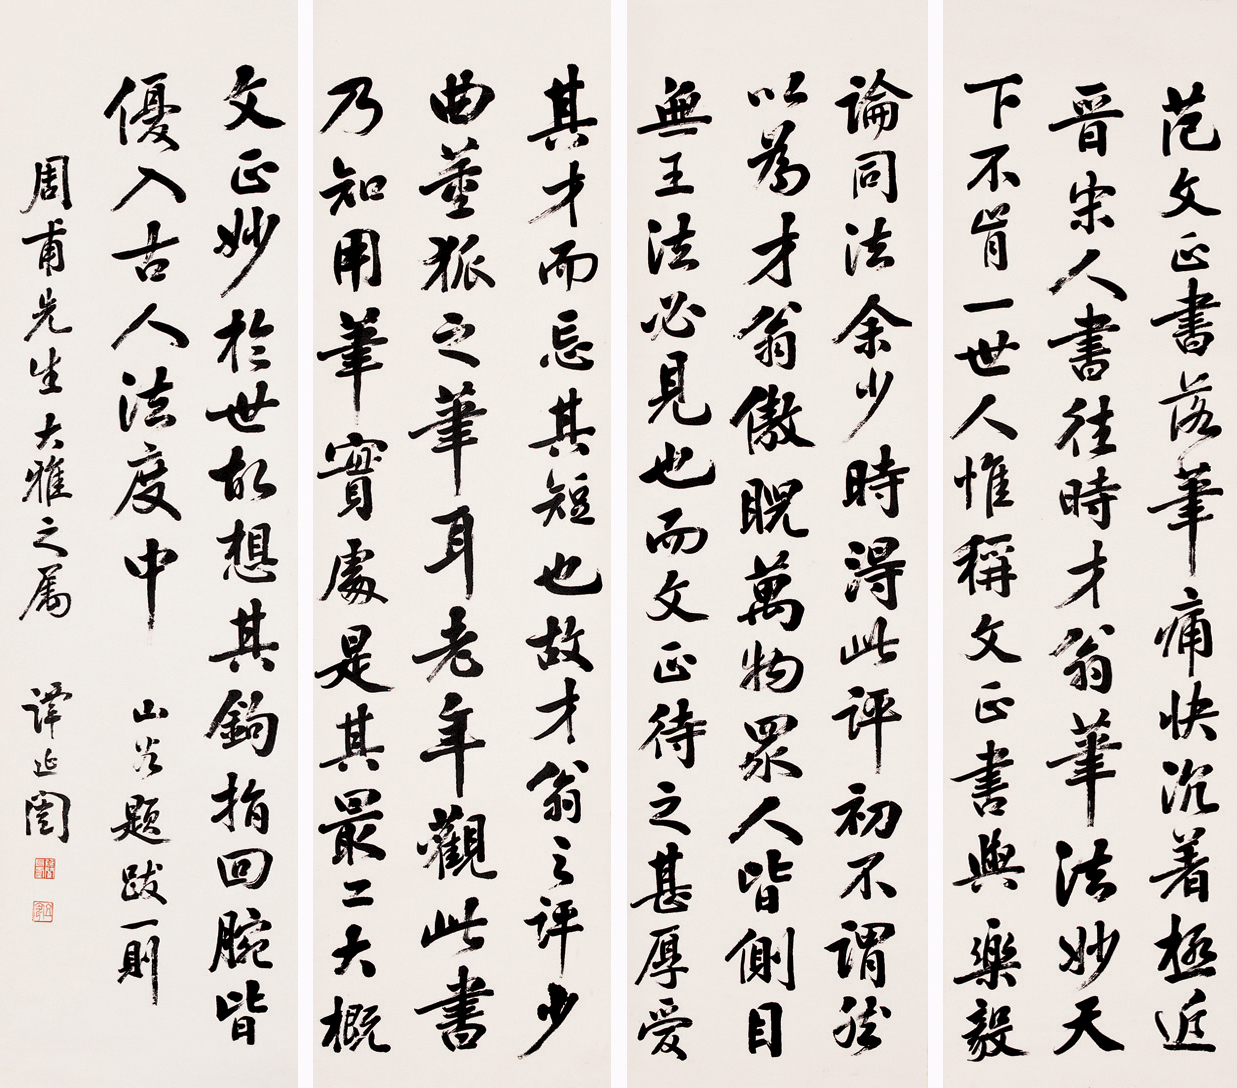 范文正書落筆痛快沉着極近
晉宋人書往時才翁筆法妙天
下不肯一世人惟稱文正書與樂毅
論同法余少時得此評初不謂然
以為才翁傲睨萬物眾人皆側目
無王法必見也而文正待之甚厚愛
其才而忘其短也故才翁之評少
曲董狐之筆耳老年觀此書
乃知用筆實處是其最工大概
文正妙於世故想其鉤指回腕皆
優入古人法度中 山谷題跋一則
周甫先生大雅之屬 譚延闓